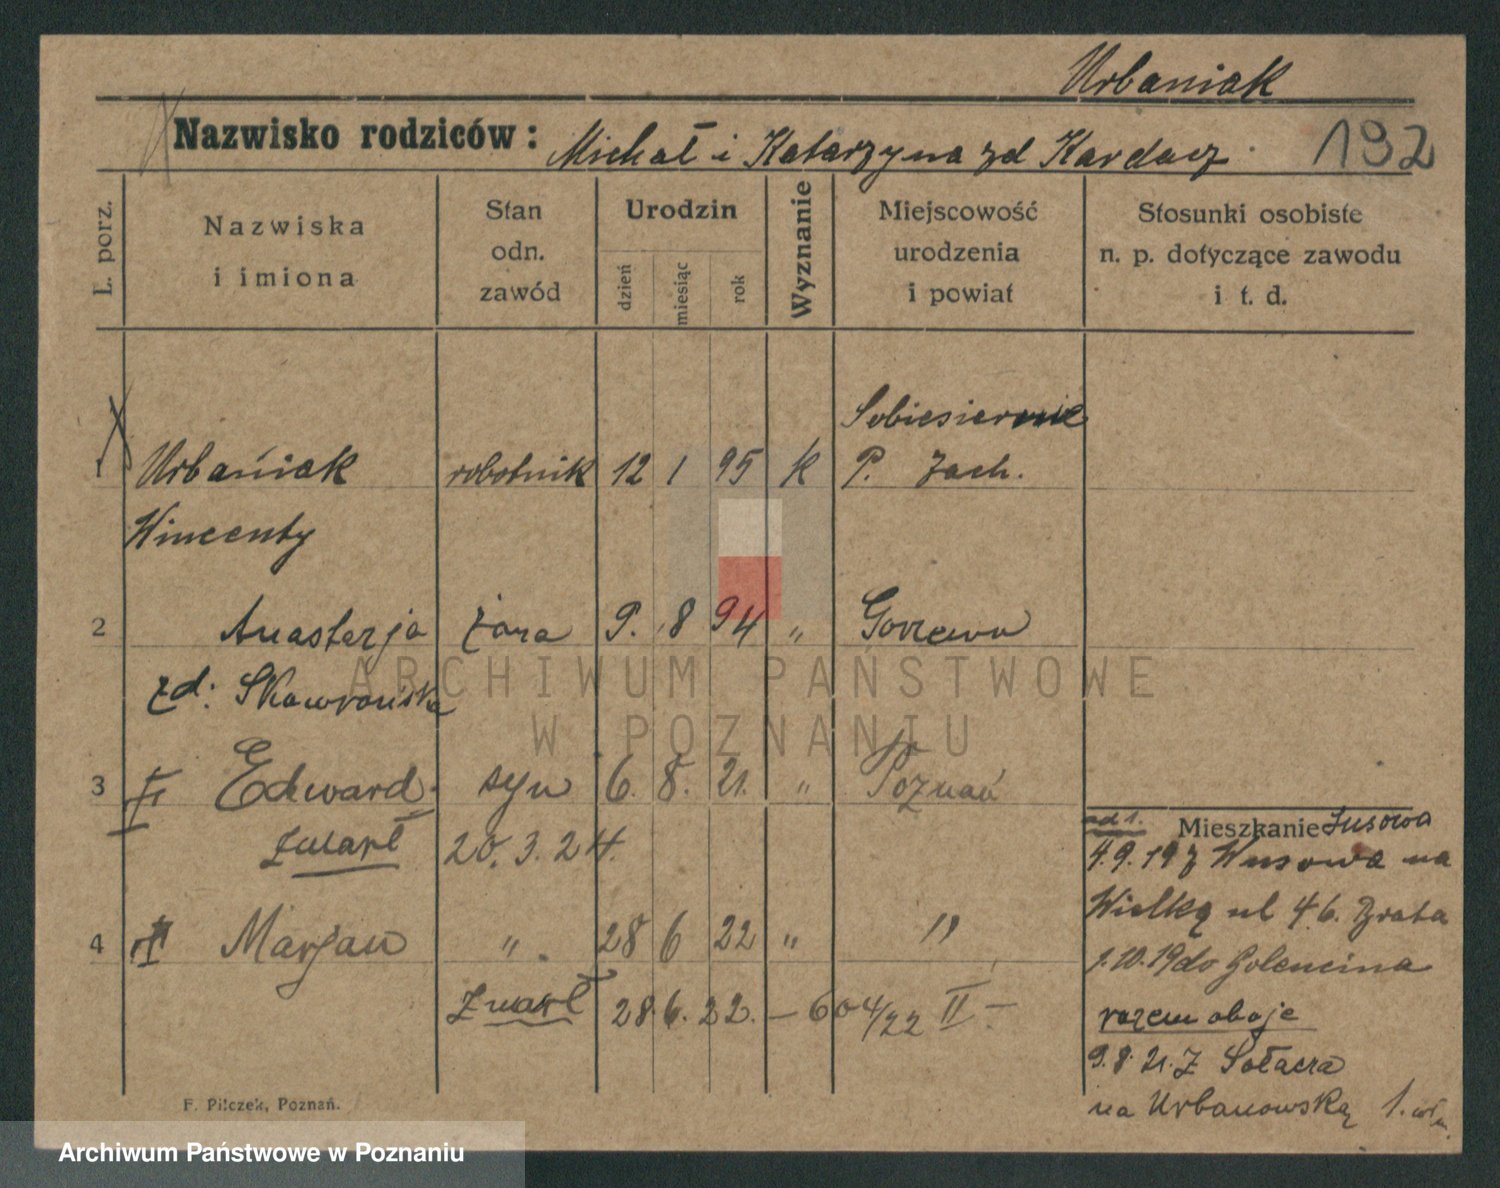 Urbaniak
Nazwisko rodziców: Michał i Katarzyna zd Kardacz
192
L. porz.
Nazwiska i imiona
Stan odn. zawód
Urodzin
dzień
miesiąc
rok
Wyznanie
Miejscowość urodzenia i powiat
Stosunki osobiste n. p. dotyczące zawodu i t. d.
1 Urbańiak robotnik 12 1 95 k Sobiesiernie P. Zach.
Wincenty
2 Anastazja żona 9. 8 94 " Gorzewo
zd: Skawrońska
3 II Edward syn 6. 8. 21. " Poznań
zmarł 20. 3. 24.
4 Marjan " 28 6 22 " "
zmarł 28. 6. 22. – 604/22 II –
ad 1. Mieszkanie Lusowa
4.9.19 z Wusowa na
Wielką ul 46. Brata
1.10.19 do Golencina
razem oboje
9.8.21. Z Sołacza
na Urbanowską 1.
F. Pilczek, Poznań.
ARCHIWUM PAŃSTWOWE
W POZNANIU
Archiwum Państwowe w Poznaniu